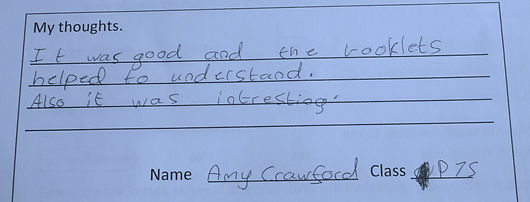 My thoughts.
It was good and the booklets
helped to understand.
Also it was intresting.
Name Amy Crawford Class P7S